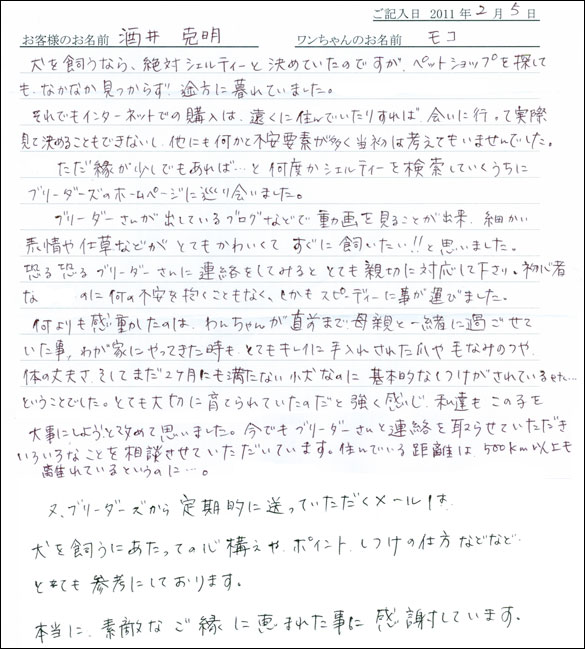 ご記入日 2011年2月5日
お客様のお名前 酒井 克明 ワンちゃんのお名前 モコ
犬を飼うなら、絶対シェルティーと決めていたのですが、ペットショップを探して
も、なかなか見つからず、途方に暮れていました。
それでもインターネットでの購入は、遠くに住んでいたりすれば、会いに行って実際
見て決めることもできないし、他にも何かと不安要素が多く当初は考えてもいませんでした。
ただ縁が少しでもあれば…と何度かシェルティーを検索していくうちに
ブリーダーズのホームページに巡り会いました。
ブリーダーさんが出しているブログなどで動画を見ることが出来、細かい
表情や仕草などが、とてもかわいくて すぐに飼いたい!!と思いました。
恐る恐るブリーダーさんに連絡をしてみると とても親切に対応して下さり。初心者
な のに何の不安を抱くこともなく、しかもスピーディーに事が運びました。
何よりも感動したのは、わんちゃんが直前まで母親と一緒に過ごせて
いた事、わが家にやってきた時も、とてもキレイに手入れされた爪や毛なみのつや、
体の丈夫さ、そしてまだ2ヶ月にも満たない小犬なのに 基本的なしつけがされている
ということでした。とても大切に育てられていたのだと強く感じ、私達もこの子を
大事にしようと改めて思いました。今でもブリーダーさんと連絡を取らせていただき
いろいろなことを相談させていただいています。住んでいる距離は500km以上も
離れているというのに…。
又、ブリーダーズから定期的に送っていただくメールは、
犬を飼うにあたっての心構えや、ポイント、しつけの仕方などなど
とても参考にしております。
本当に、素敵なご縁に恵まれた事に感謝しています。